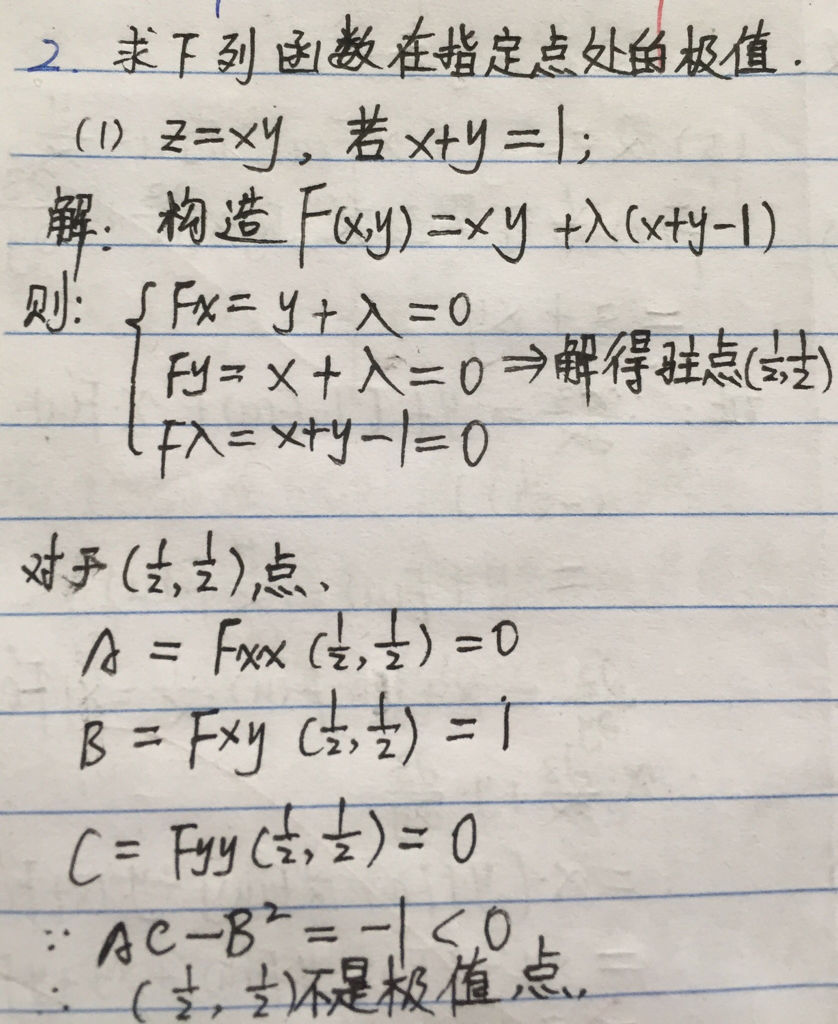 2. 求下列函数在指定点处的极值.
(1) z=xy, 若 x+y=1;
解: 构造 F(x,y)=xy+λ(x+y-1)
则: { Fx=y+λ=0
Fy=x+λ=0 ⇒解得驻点(1/2,1/2)
Fλ=x+y-1=0
对于(1/2,1/2)点、
A = Fxx (1/2,1/2) = 0
B = Fxy (1/2,1/2) = 1
C = Fyy (1/2,1/2) = 0
∵ AC-B² = -1 < 0
∴ (1/2,1/2)不是极值点.